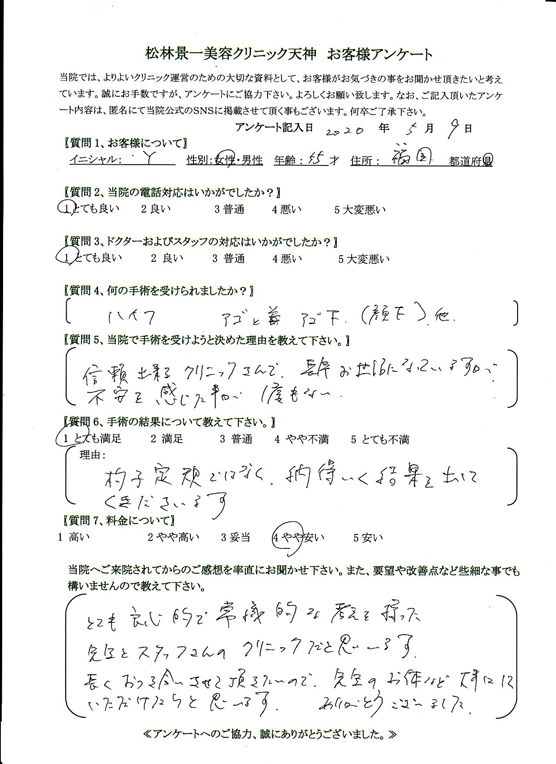 松林景一美容クリニック天神　お客様アンケート
当院では、よりよいクリニック運営のための大切な資料として、お客様がお気づきの事をお聞かせ頂きたいと考え
ています。誠にお手数ですが、アンケートにご協力下さい。よろしくお願い致します。なお、ご記入頂いたアンケ
ート内容は、匿名にて当院公式のSNSに掲載させて頂く事もございます。何卒ご了承下さい。
アンケート記入日 2020 年 5 月 9 日
【質問1、お客様について】
イニシャル： Y 性別：女性・男性 年齢：55 才 住所： 福岡 都道府県
【質問2、当院の電話対応はいかがでしたか？】
1とても良い 2良い 3普通 4悪い 5大変悪い
【質問3、ドクターおよびスタッフの対応はいかがでしたか？】
1とても良い 2 良い 3 普通 4悪い 5大変悪い
【質問4、何の手術を受けられましたか？】
ハイフ アゴと アゴ下、(顔下)、他
【質問5、当院で手術を受けようと決めた理由を教えて下さい。】
信頼出来るクリニックさんで、長年お世話になっていますが、
不安を感じた事が1度もない。
【質問6、手術の結果について教えて下さい。】
1 とても満足 2 満足 3 普通 4 やや不満 5 とても不満
理由：
杓子定規ではなく、納得いく結果を出して
くださいます
【質問7、料金について】
1 高い 2やや高い 3妥当 4やや安い 5安い
当院へご来院されてからのご感想を率直にお聞かせ下さい。また、要望や改善点など些細な事でも
構いませんので教えて下さい。
とても良心的で常識的な考えを持った
先生とスタッフさんのクリニックだと思います。
長くおつき合いさせて頂きたいので、先生のお体など大事にして
いただけたらと思います。 ありがとうございました。
≪アンケートへのご協力、誠にありがとうございました。≫